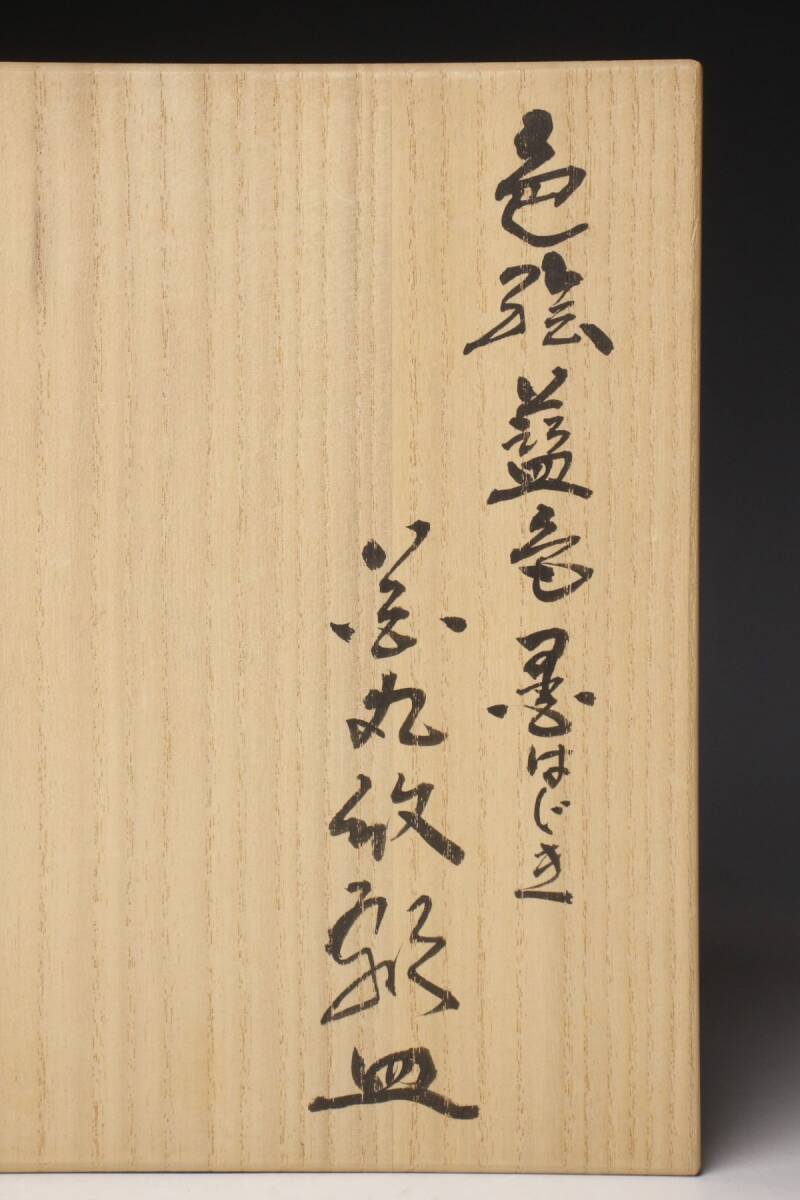 色絵藍色墨はじき
丸紋額皿